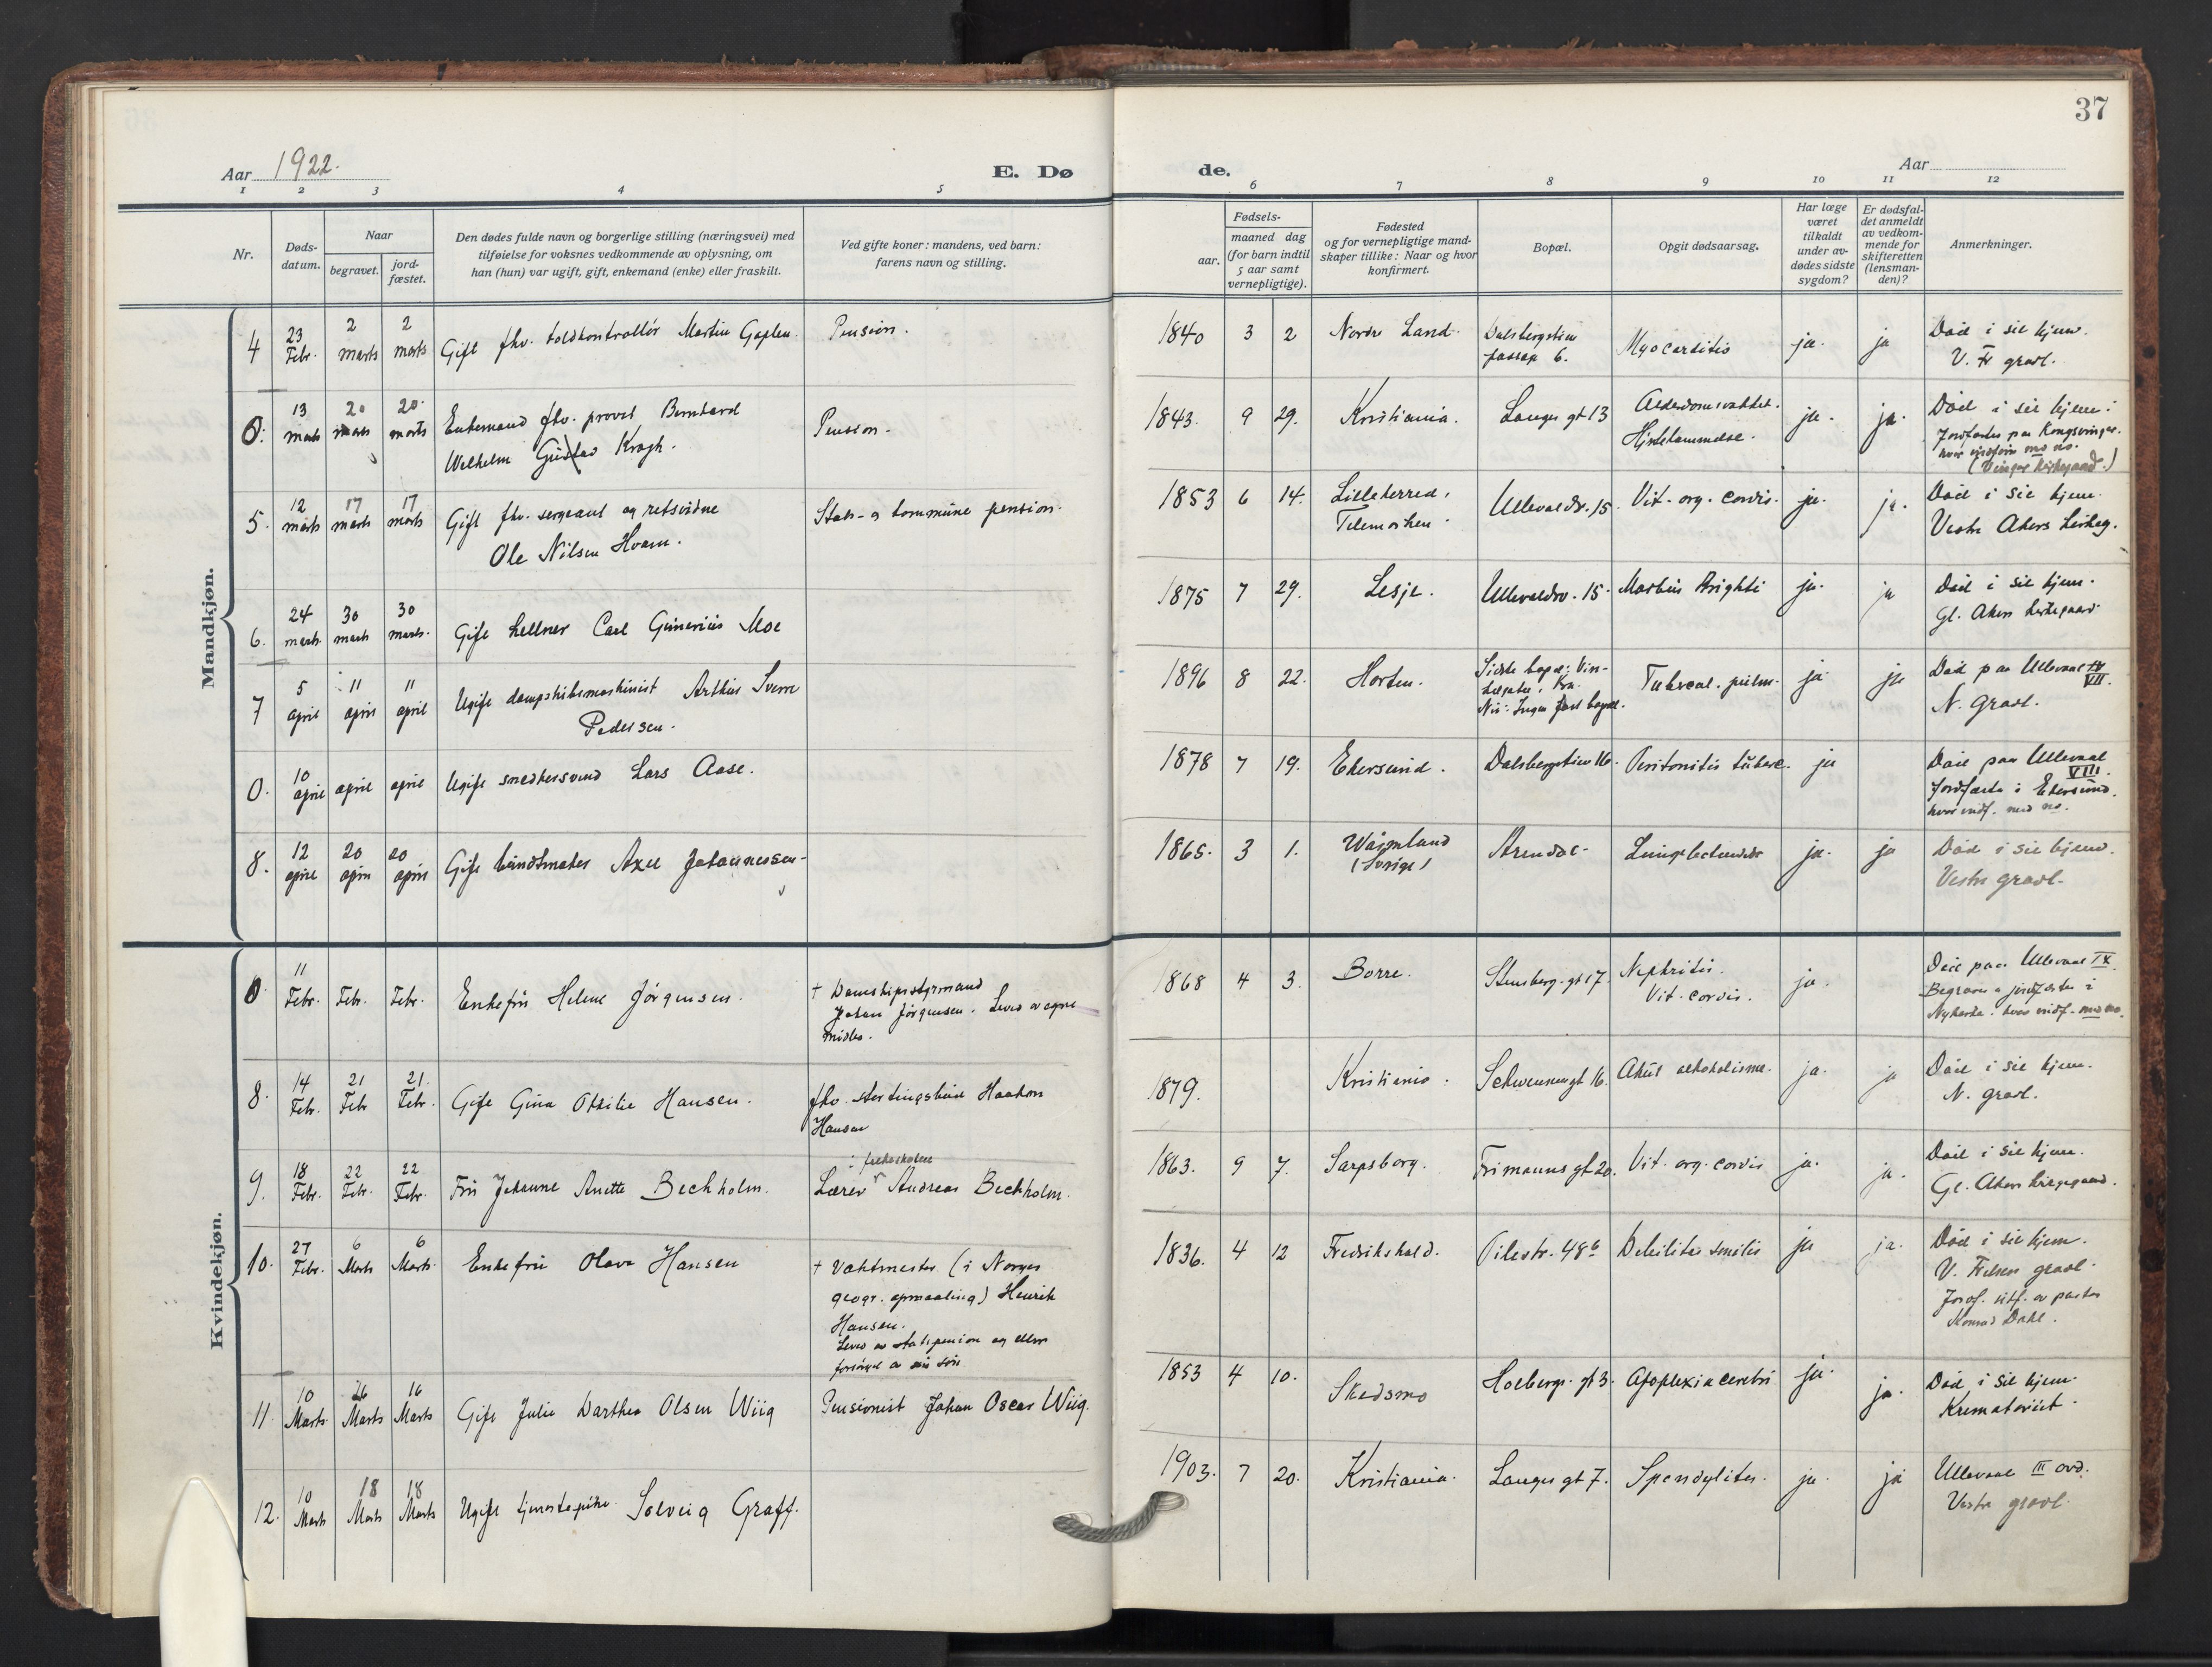 37
Aar 1922.
E. Dø
de.
Aar
1 2 3 4 5
6 7 8 9 10 11 12
Nr.
Døds-
datum.
Naar
begravet.
jord-
fæstet.
Den dødes fulde navn og borgerlige stilling (næringsvei) med
tilføielse for voksnes vedkommende av oplysning, om
han (hun) var ugift, gift, enkemand (enke) eller fraskilt.
Ved gifte koner: mandens, ved barn:
farens navn og stilling.
Fødsels-
aar.
maaned dag
(for barn indtil
5 aar samt
vernepligtige).
Fødested
og for vernepligtige mand-
skaper tillike: Naar og hvor
konfirmert.
Bopæl.
Opgit dødsaarsag.
Har læge
været
tilkaldt
under av-
dødes sidste
sygdom?
Er dødsfal-
det anmeldt
av vedkom-
mende for
skifteretten
(lensman-
den)?
Anmerkninger.
Mandkjøn.
4 23 Febr. 2 marts 2 marts
Gift fhv. toldkontrollør Martin
Pension.
1840 3 2 Nordre Land.
6.
Myocarditis ja. ja
Død i sit hjem.
V. Fr gravl.
0. 13 marts 20 marts 20. marts
Enkemand fhv. provst Bernhard
Wilhelm Gustav Kragh.
Pension.
1843. 9 29. Kristiania. Langes gt 13
Hjertelammelse. ja. ja.
Død i sit hjem.
Jordfæstes paa Kongsvinger.
hvor indføres med no.
(Vinger kirkegaard.)
5. 12 marts 17 marts 17 marts
Gift fhv. sergeant og retsvidne
Ole Nilsen Hvam.
Stats- og kommune pension.
1853 6 14. Lilleherred,
Telemarken.
Ullevaalsv. 15. Vit. org. cordis. ja. ja.
Død i sit hjem.
Vestre Akers kirkeg.
6. 24 marts 30 marts 30 marts.
Gift kellner Carl Gunerius Moe
1875 7 29. Lesje. Ullevaalsv. 15. Morbus Brighti ja. ja
Død i sit hjem.
Gl. Akers kirkegaard.
7 5 april 11 april 11 april
Ugift dampskibsmaskinist Arthur Sverre
Pedersen.
1896 8 22. Horten.
Sidste bopæl:
Kra.
Nu: Ingen fast bopæl.
Tubercul. pulm. ja ja
Død paa Ullevaal VII.
N. Gravl.
0. 10 april april april
Ugift snedkersvend Lars Aase.
1878 7 19. Ekersund. Dalsbergstien 16. Peritonitis tuberc. ja
Død paa Ullevaal
VIII.
Jordfæstes i Ekersund.
hvor indf. med no.
8. 12 april 20 april 20 april
Gift bundtmaker Axel Johannessen
1865. 3 1. Wärmland
(Sverige)
Arendal. Lungebetændelse ja. ja
Død i sit hjem.
Vestre gravl.
Kvindekjøn.
0 11 Febr. Febr. Febr.
Enkefru Helene Jörgensen.
† Dampskipsstyrmand
Johan Jörgensen. Leved av egne
midler.
1868 4 3. Borre. Stensberg.gt 17 Nephritis.
Vit. cordis. ja.
Død paa Ullevaal IX.
Begraves og jordfæstes i
Nykirke. hvor indf. med no.
8. 14 Febr. 21 Febr 21. Febr.
Gift Gina Otilie Hansen.
fhv. stortingsbud Haakon
Hansen
1879. Kristiania. Schwensensgt 16. Akut alkoholisme. ja. ja
Død i sit hjem.
N. gravl.
9. 18 Febr. 22 Febr. 22 Febr.
Fru Johanne Anette Bechholm.
i folkeskolen
Lærer Andreas Bechholm.
1863. 9 7. Sarpsborg. Frimanns gt 20. Vit. org. cordis ja. ja.
Død i sit hjem.
Gl. Akers kirkegaard.
10. 27 Febr. 6 Marts 6 Marts.
Enkefru Olava Hansen
† Vaktmester (i Norges
geogr. opmaaling) Henrik
Hansen.
Leved av statspension og ellers
forsörget av sin sön
1836. 4 12 Fredrikshald. Pilestr. 48 b Debilitas senilis ja ja.
Død i sit hjem.
V. Frelsers gravl.
Jordf. utf. av pastor
Konrad Dahl.
11. 10 Marts 16 Marts 16 Marts
Gift Julie Dorthea Olsen Wiig
Pensionist Johan Oscar Wiig.
1853 4 10. Skedsmo Holbergs gt 3. Apoplexia cerebri ja. ja.
Død i sit hjem.
Krematoriet.
12. 10 Marts 18 Marts 18 Marts
Ugift tjenestepike Solveig Graff.
1903. 7 20. Kristiania. Langes gt 7. Spondylites. ja. ja
Ullevaal III avd.
Vestre gravl.